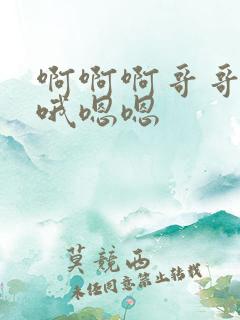 啊啊啊哥哥
哦嗯嗯
莫競西
未经同意禁止转载